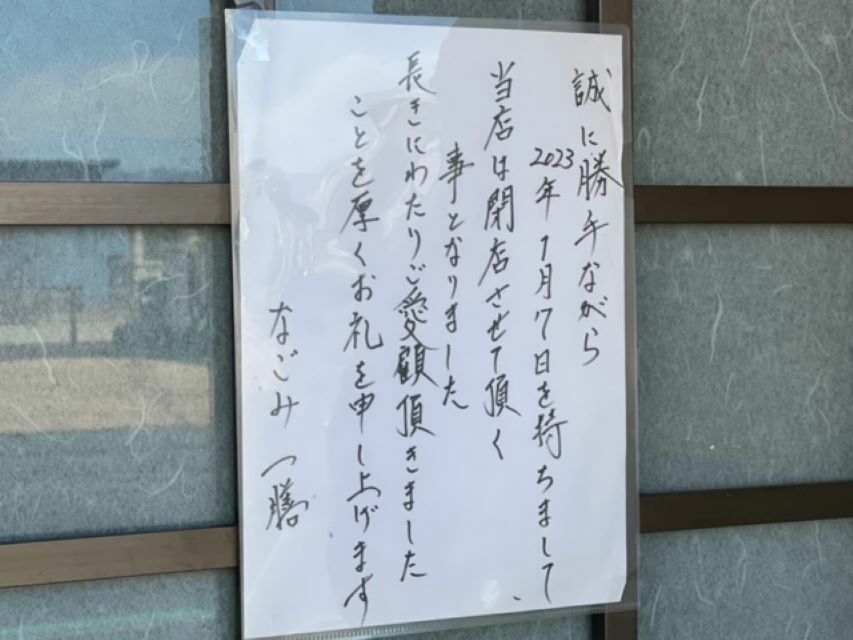 誠に勝手ながら
2023年1月7日を持ちまして、
当店は閉店させて頂く
事となりました
長きにわたりご愛顧頂きました
ことを厚くお礼を申し上げます
なごみ一膳